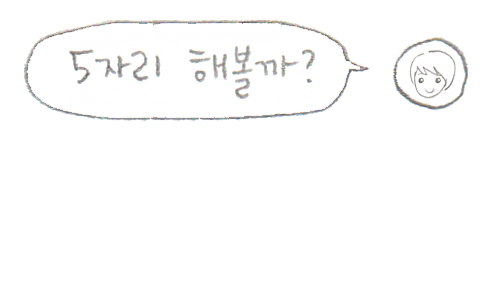 5자리 해볼까?